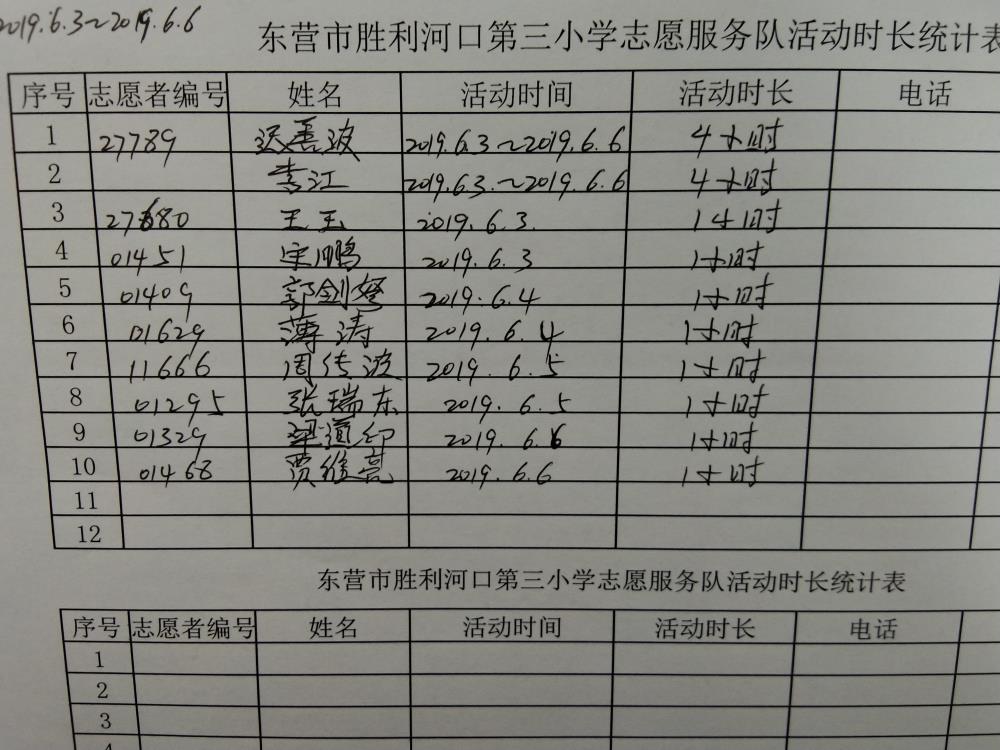 2019.6.3~2019.6.6
东营市胜利河口第三小学志愿服务队活动时长统计表
序号 志愿者编号 姓名 活动时间 活动时长 电话
1 27789 波 2019.6.3~2019.6.6 4小时
2 李江 2019.6.3.~2019.6.6 4小时
3 27680 王玉 2019.6.3. 1小时
4 01451 宋鹏 2019.6.3 1小时
5 01409 郭剑 2019.6.4 1小时
6 01629 薄涛 2019.6.4 1小时
7 11666 周传波 2019.6.5 1小时
8 01295 张瑞东 2019.6.5 1小时
9 01329 梁道 2019.6.6 1小时
10 01468 贾维亮 2019.6.6 1小时
11
12
东营市胜利河口第三小学志愿服务队活动时长统计表
序号 志愿者编号 姓名 活动时间 活动时长 电话
1
2
3